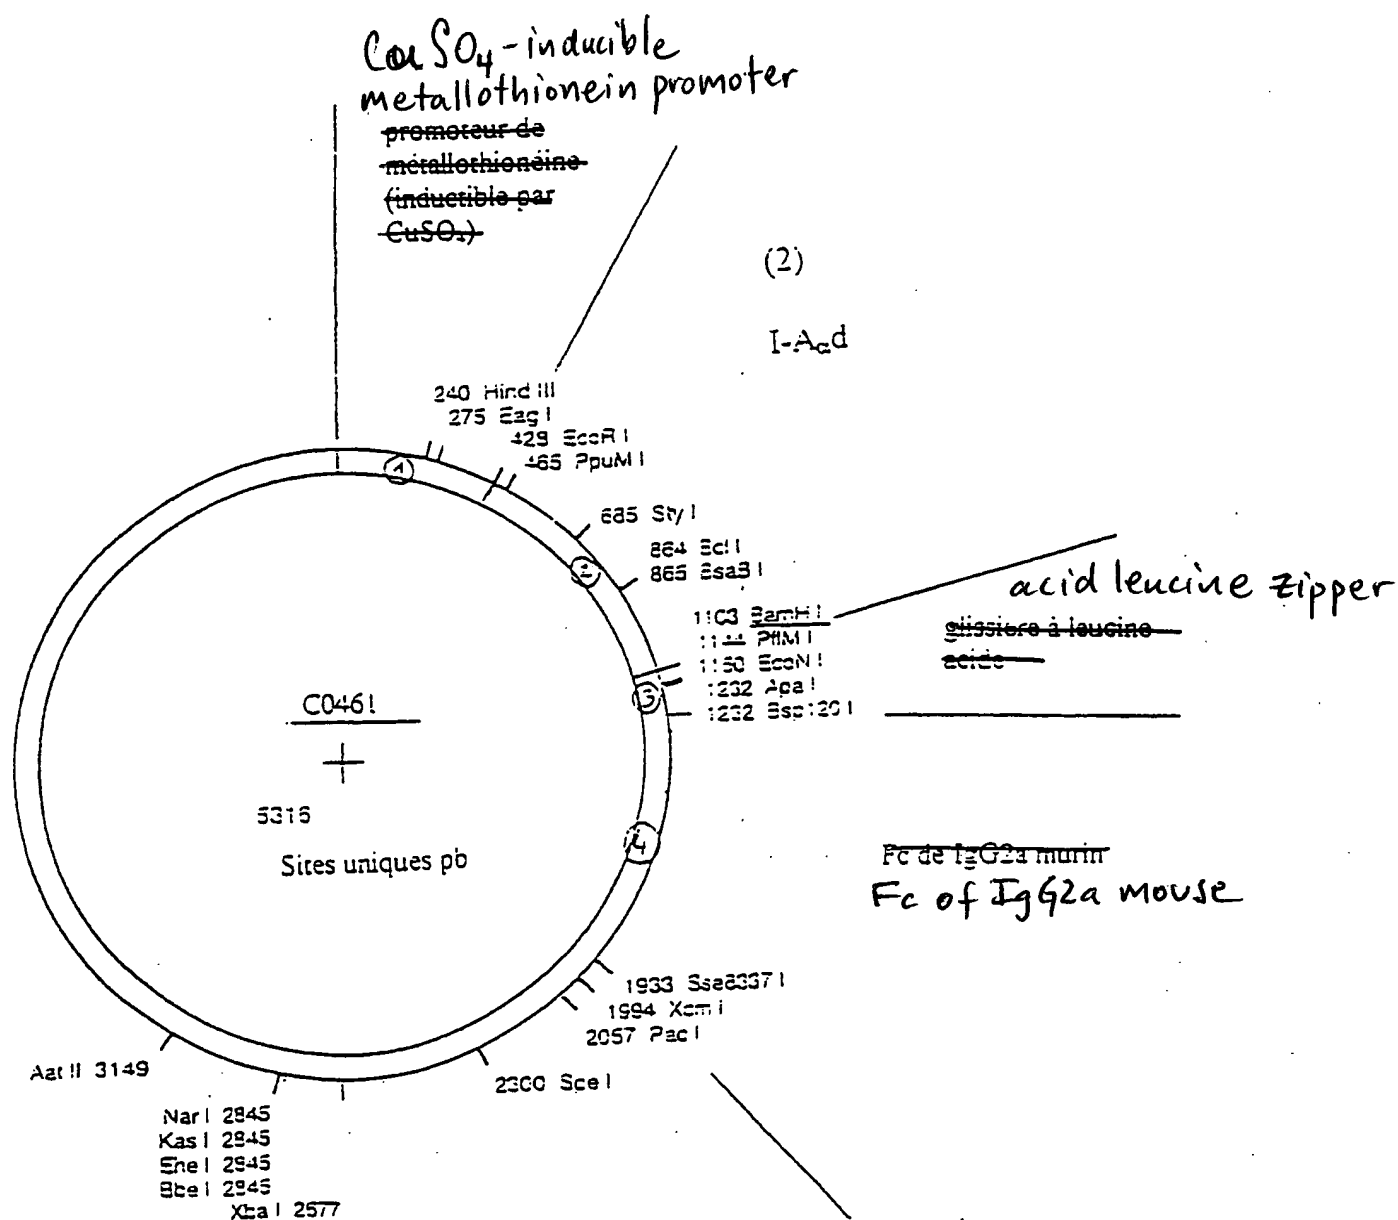 CuSO4-inducible
metallothionein promoter
promoteur de
métallothionéine
(inductible par
CuSO4)
(2)
I-Aαd
240 Hind III
275 Eag I
429 EcoR I
465 PpuM I
1
685 Sty I
864 Bcl I
865 BsaB I
2
1103 BamH I
1144 PflM I
1150 EcoN I
1232 Apa I
1232 Bsp120 I
3
acid leucine zipper
glissière à leucine
acide
C046 I
5315
Sites uniques pb
4
Fc de IgG2a murin
Fc of IgG2a mouse
1933 Sse8337 I
1994 Xcm i
2057 Pac I
2300 Spe I
Aat II 3149
Nar I 2845
Kas I 2845
Ehe I 2845
Bbe I 2845
Xba I 2577